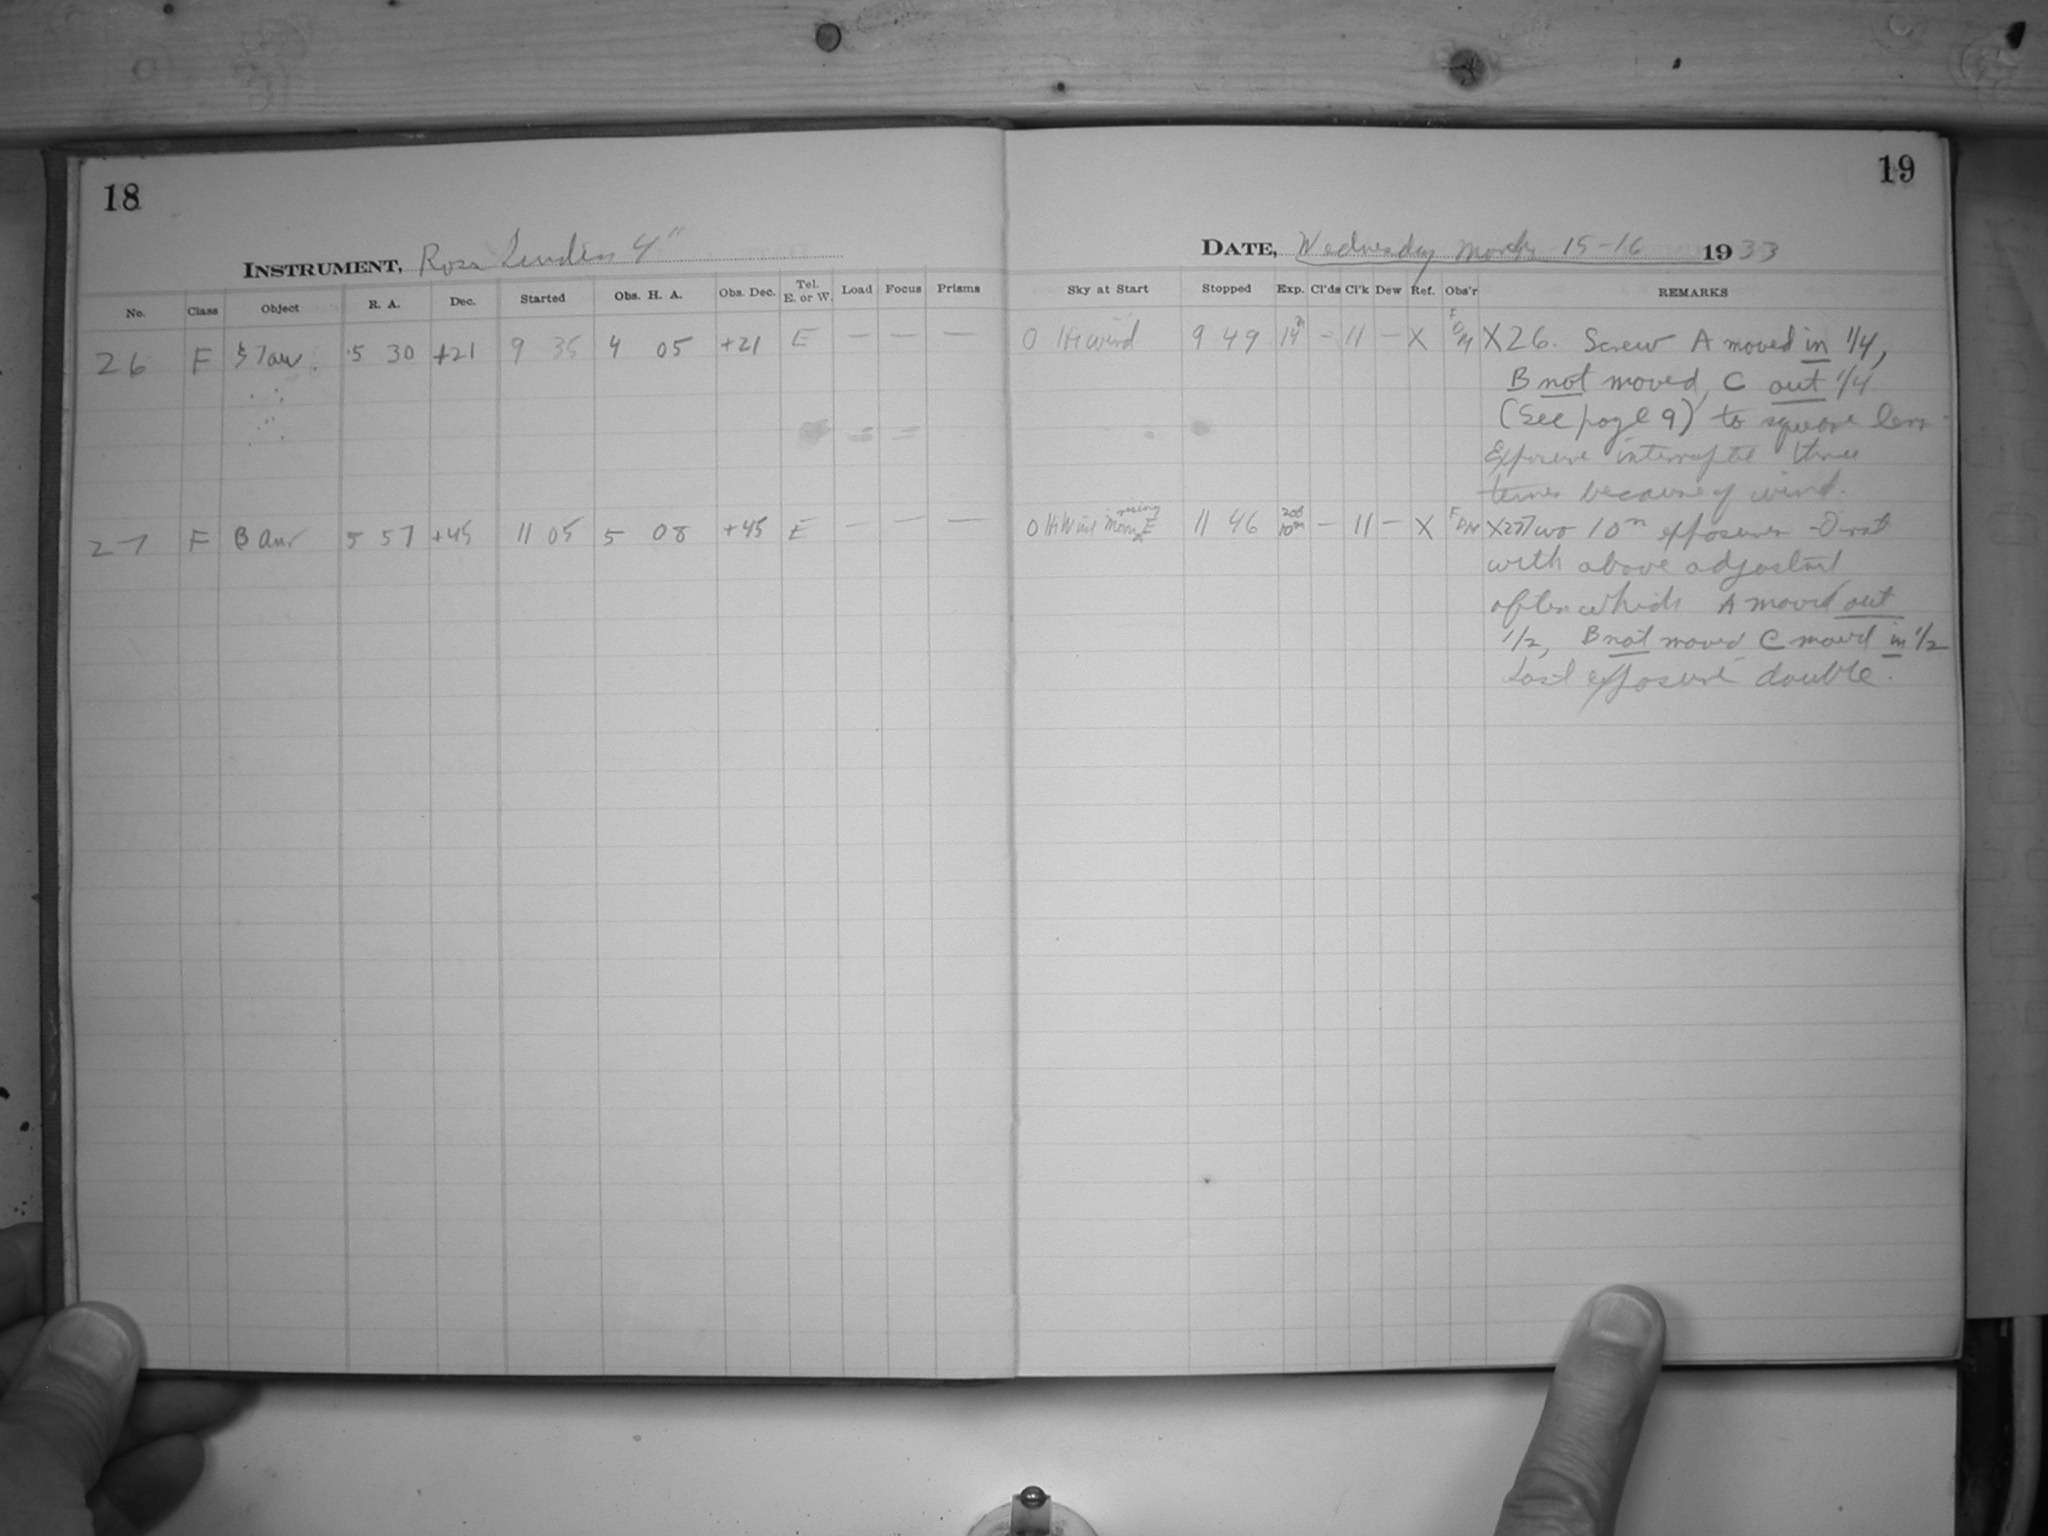 18
19
INSTRUMENT, Ross Lundin 4"
DATE, Wednesday March 15-16 1933
No. Class Object R. A. Dec. Started Obs. H. A. Obs. Dec. Tel. E. or W. Load Focus Prisms Sky at Start Stopped Exp. Cl'ds Cl'k Dew Ref. Obs'r REMARKS
26 F ζ Tau. 5 30 +21 9 35 4 05 +21 E — — — 0 Hi wind 9 49 14m – 11 – X X26. Screw A moved in 1/4,
B not moved, C out 1/4
(See page 9) to square lens
Exposure interrupted three
times because of wind.
27 F B Aur 5 57 +45 11 05 5 08 +45 E — — — 0 Hi Wind Moon rising E 11 46 10m – 11 – X X27 Two 10m exposures
with above adjustment
after which A moved out
1/2, B not moved C moved in 1/2
Last exposure double.